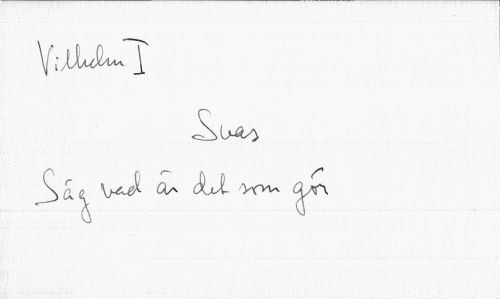 Vilhelm I
Svar
Säg vad är det som gör